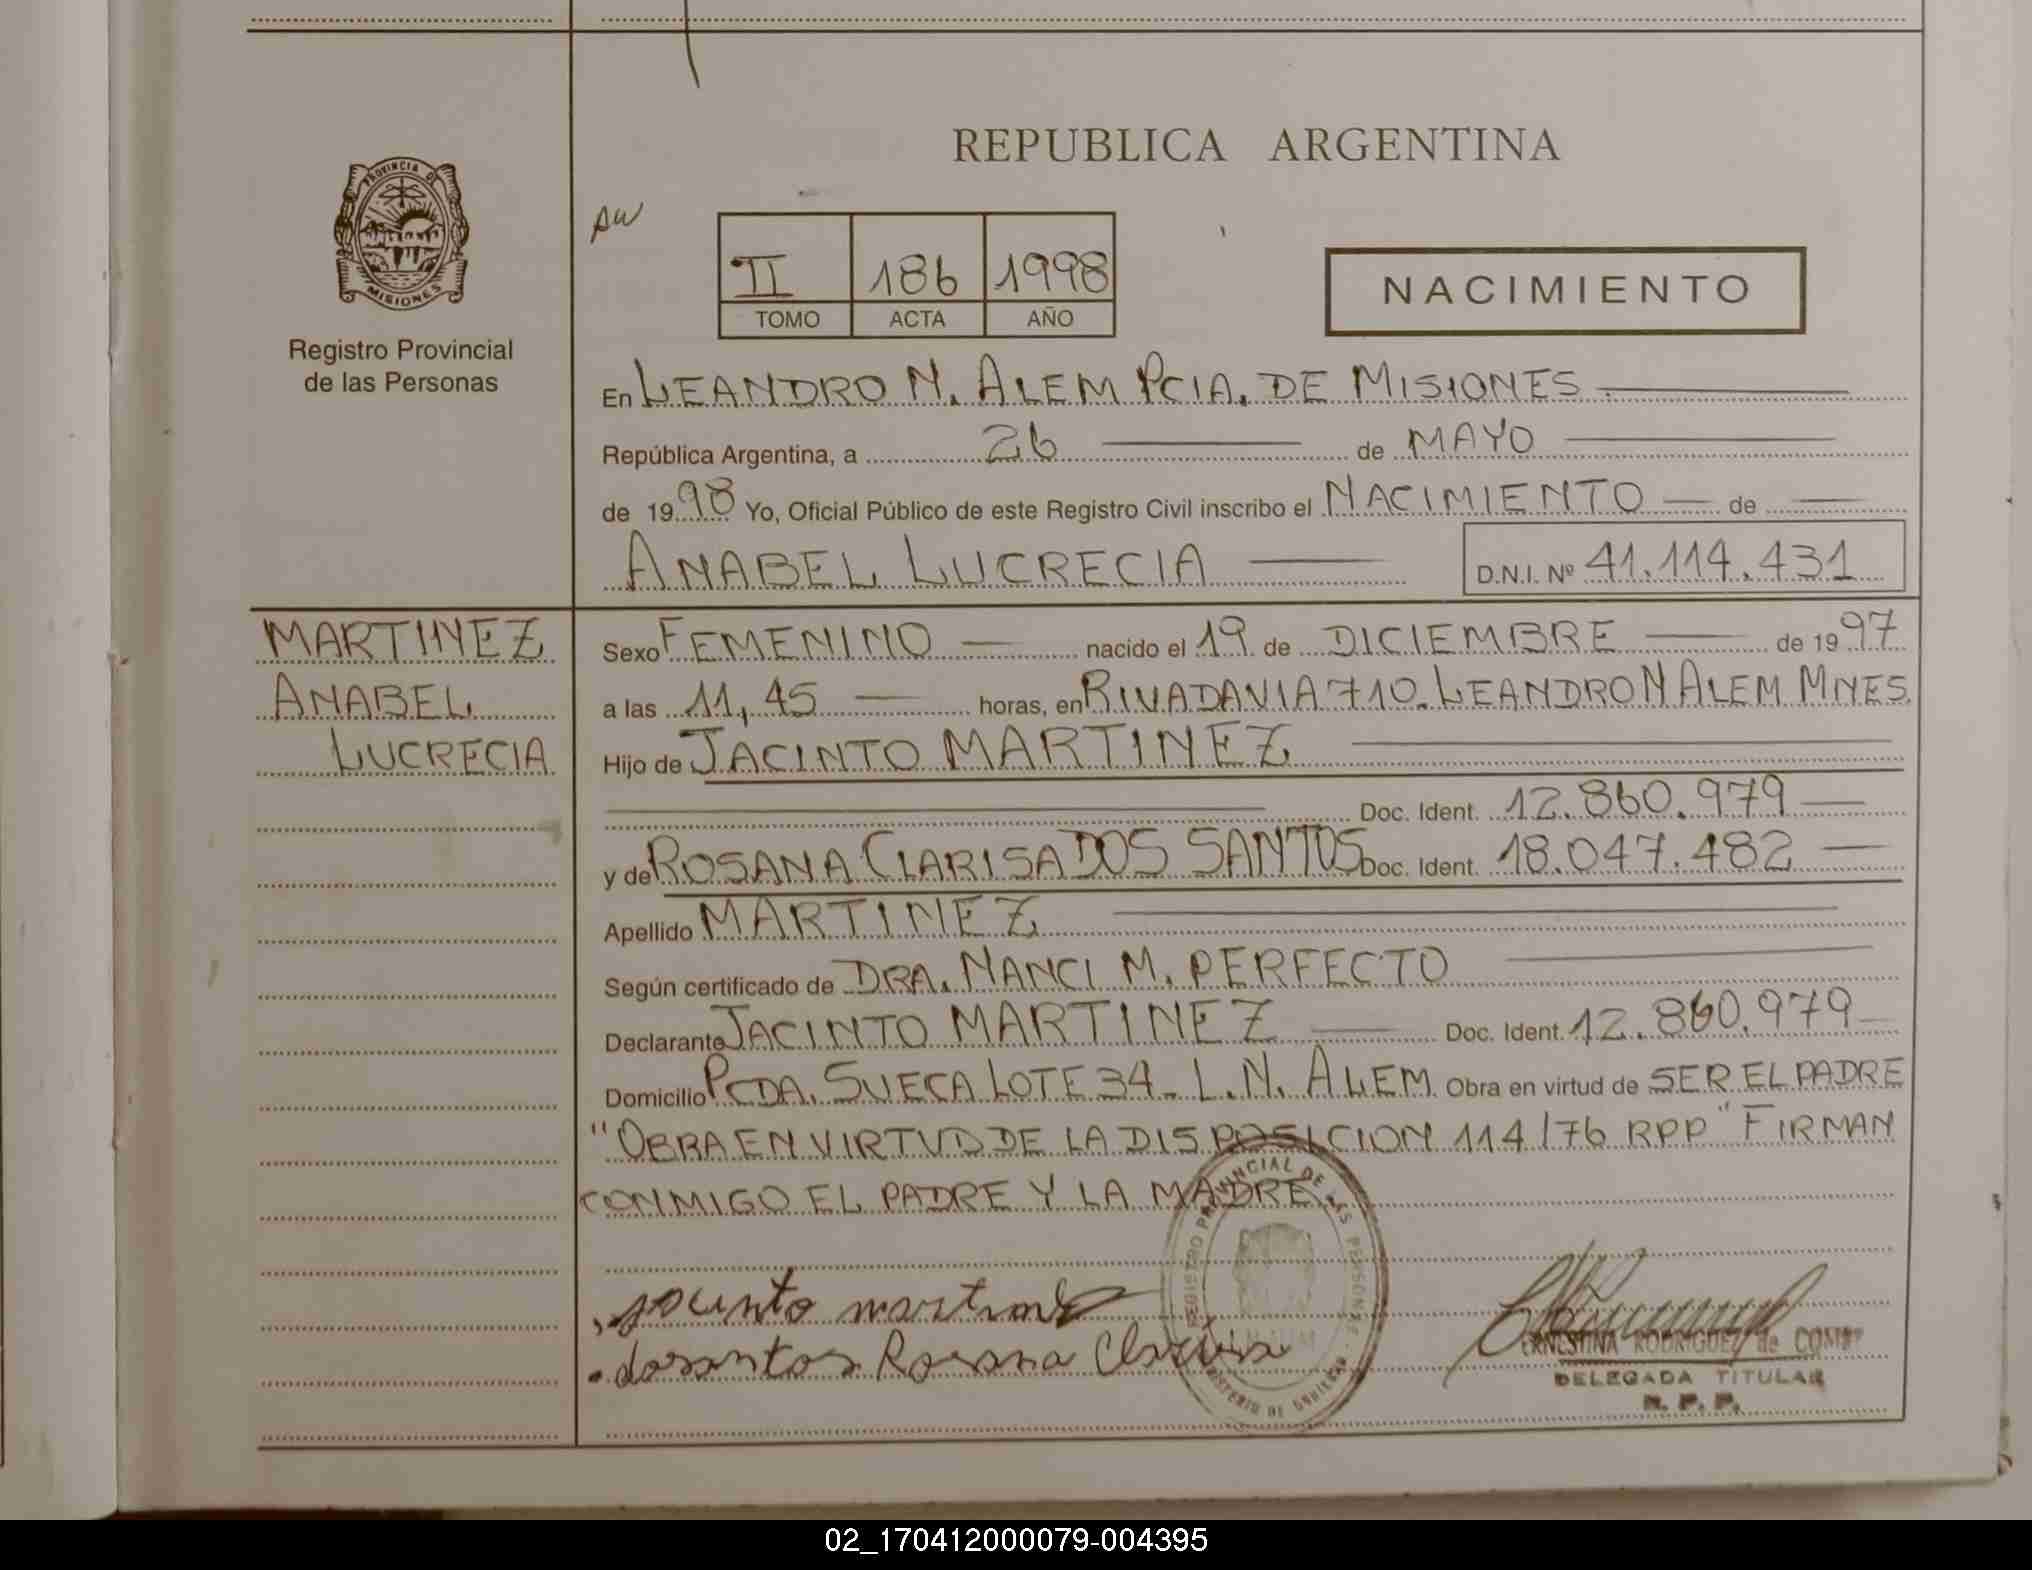 REPUBLICA ARGENTINA
PROVINCIA DE
MISIONES
Registro Provincial
de las Personas
II 186 1998
TOMO ACTA AÑO
NACIMIENTO
En LEANDRO N. ALEM PCIA. DE MISIONES
República Argentina, a 26 de MAYO
de 1998 Yo, Oficial Público de este Registro Civil inscribo el NACIMIENTO de
ANABEL LUCRECIA D.N.I. Nº 41.114.431
MARTINEZ
ANABEL
LUCRECIA
Sexo FEMENINO nacido el 19 de DICIEMBRE de 1997
a las 11,45 horas, en RIVADAVIA 710. LEANDRO N ALEM MNES.
Hijo de JACINTO MARTINEZ
Doc. Ident. 12.860.979
y de ROSANA CLARISA DOS SANTOS Doc. Ident. 18.047.482
Apellido MARTINEZ
Según certificado de DRA. NANCI M. PERFECTO
Declarante JACINTO MARTINEZ Doc. Ident. 12.860.979
Domicilio PCDA. SUECA LOTE 34 - L.N. ALEM Obra en virtud de SER EL PADRE
"OBRA EN VIRTUD DE LA DISPOSICION 114/76 RPP" FIRMAN
CONMIGO EL PADRE Y LA MADRE
REGISTRO PROVINCIAL DE LAS PERSONAS
jacinto martinez
dosantos Rosana Clarisa
ERNESTINA RODRIGUEZ de
DELEGADA TITULAR
R. P. P.
02_170412000079-004395